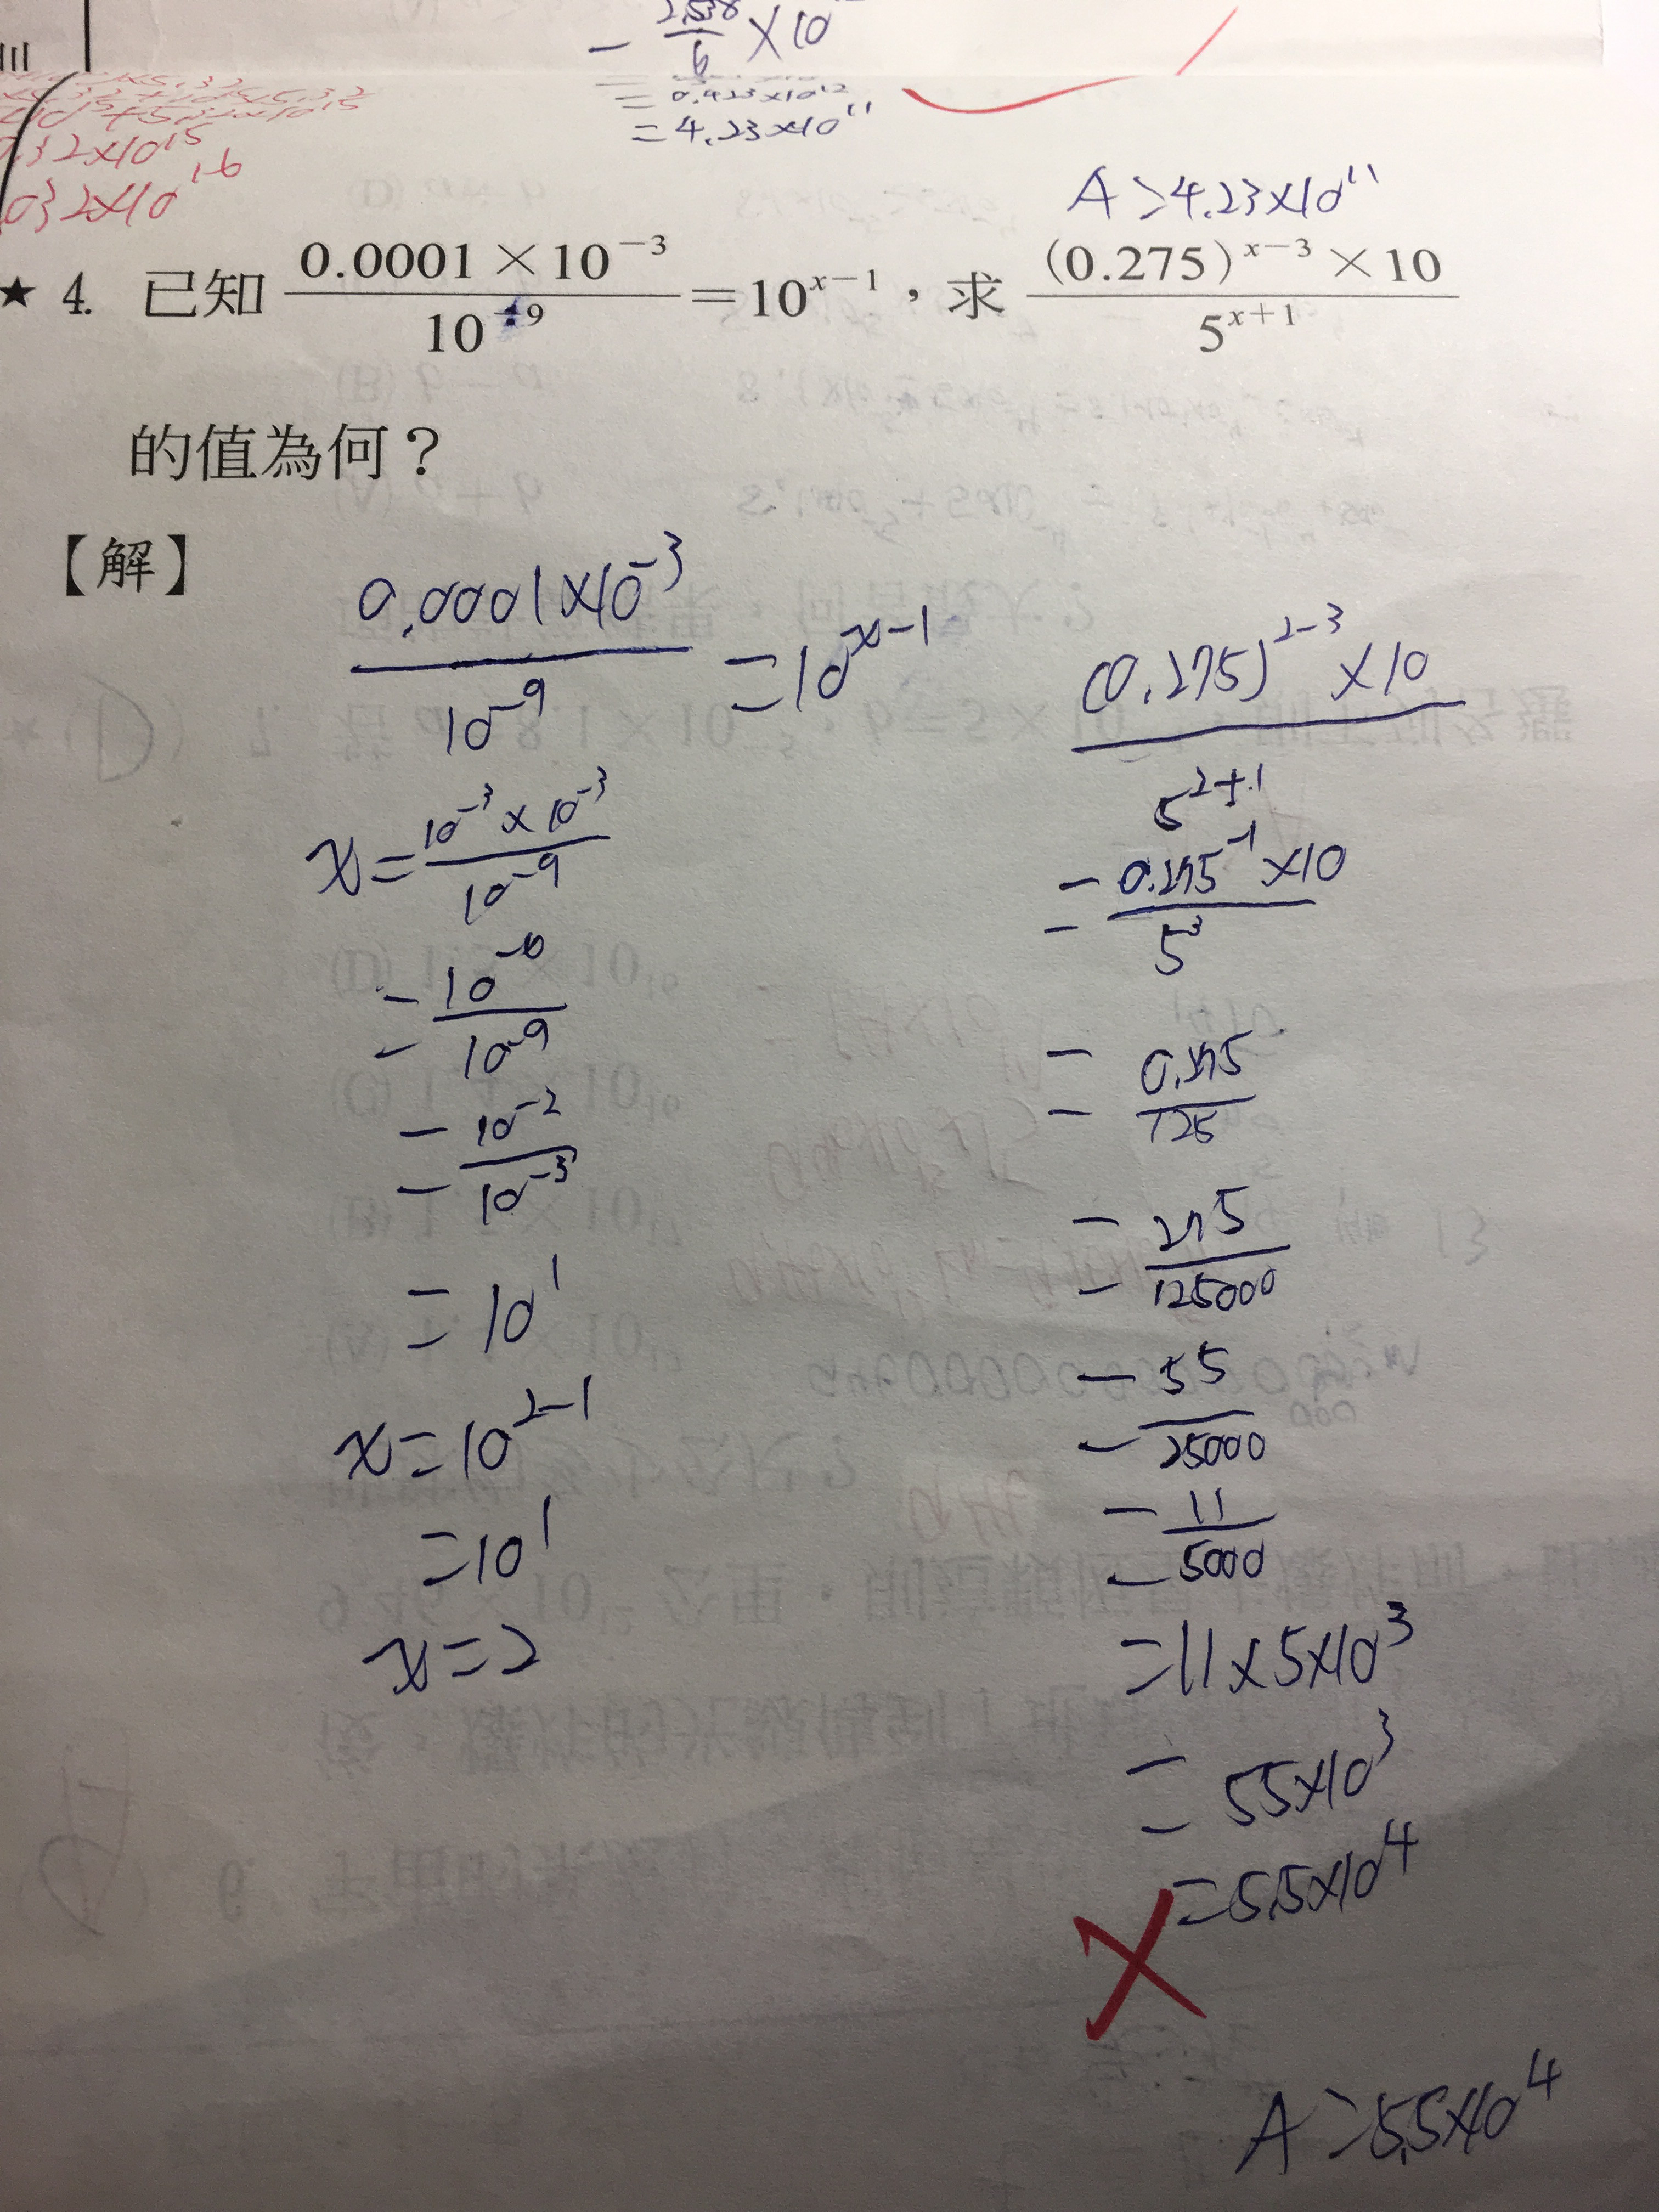 三
— 2.538/6 × 10
= 0.423×10¹²
= 4.23×10¹¹
32×10¹⁵
032×10¹⁶
A>4.23×10¹¹
★ 4. 已知 0.0001×10⁻³/10⁻⁹ =10ˣ⁻¹，求 (0.275)ˣ⁻³×10/5ˣ⁺¹
的值為何？
【解】
0.0001×10⁻³/10⁻⁹ =10ˣ⁻¹
x= 10⁻³×10⁻³/10⁻⁹
= 10⁻⁶/10⁻⁹
= 10⁻²/10⁻³
= 10¹
x=10²⁻¹
=10¹
x=2
(0.275)²⁻³×10/5²⁺¹
= 0.275⁻¹×10/5³
= 0.275/125
= 275/125000
= 55/25000
= 11/5000
=11×5×10³
= 55×10³
=5.5×10⁴
A>5.5×10⁴